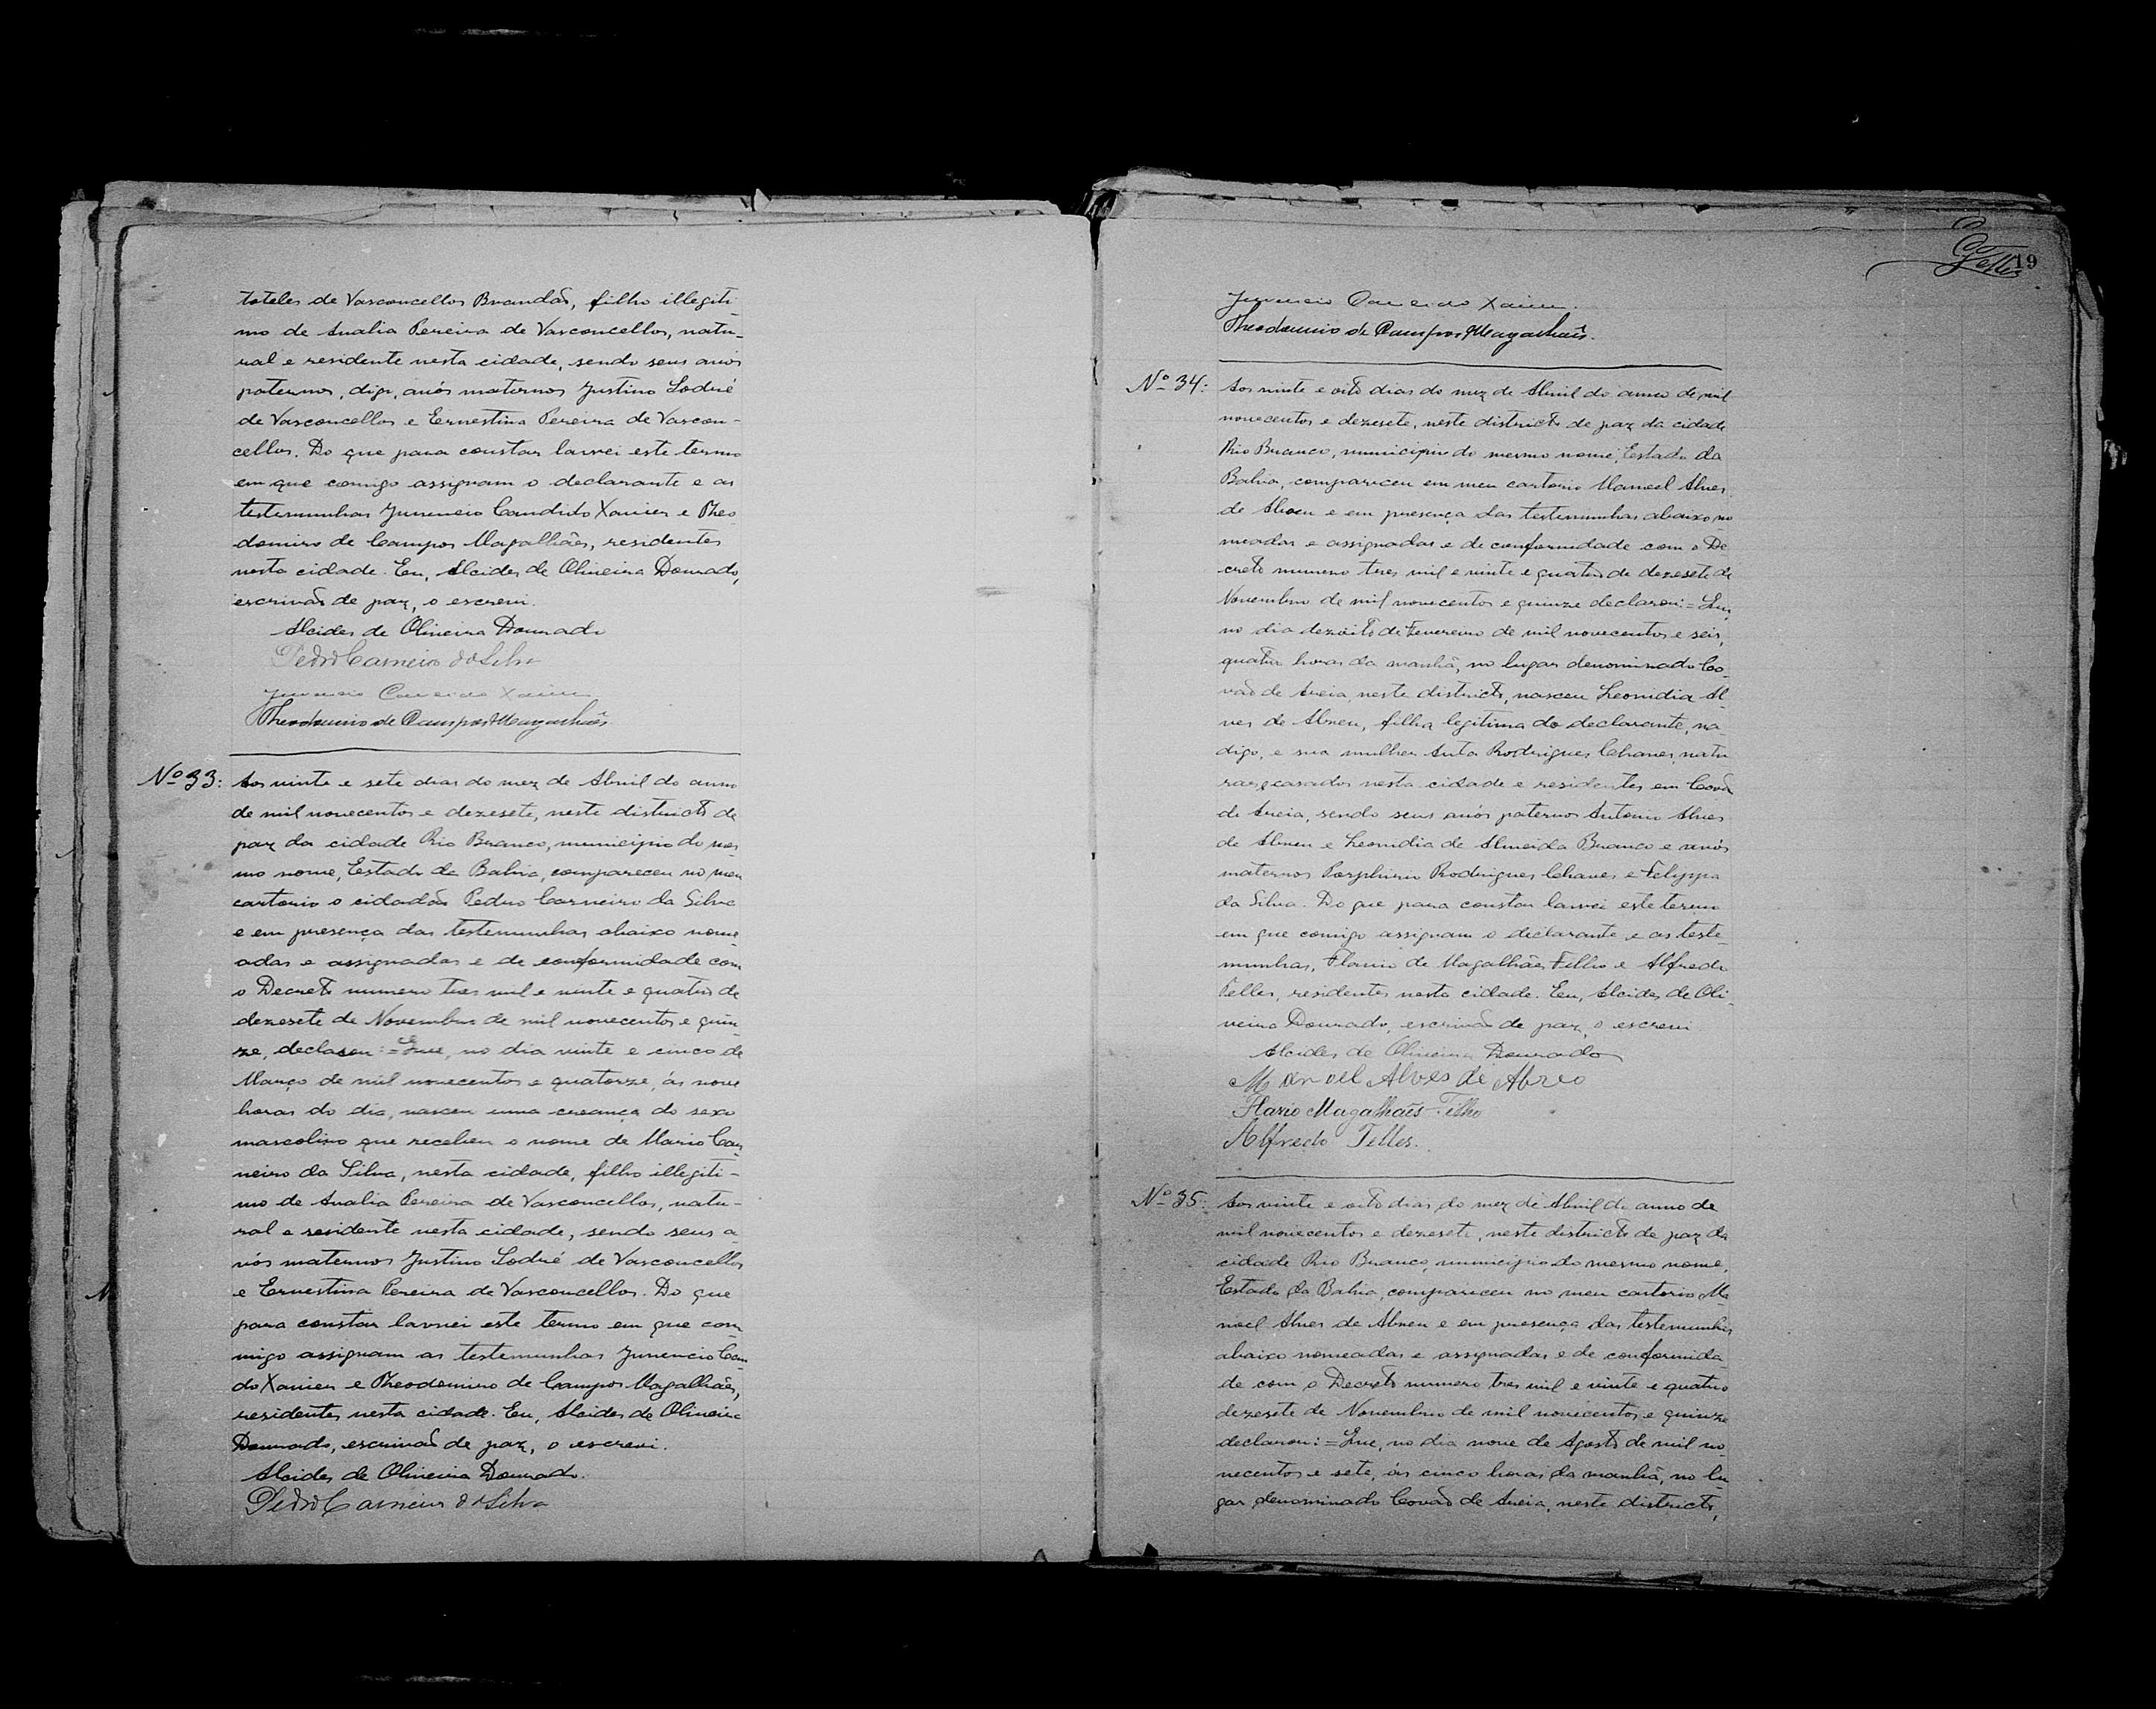 toteles de Vasconcellos Brandão, filho illegiti-
mo de Analia Pereira de Vasconcellos, natu-
ral e residente nesta cidade, sendo seus avós
paternos, digo, avós maternos Justino Sodré
de Vasconcellos e Ernestina Pereira de Vascon-
cellos. Do que para constar lavrei este termo
em que comigo assignam o declarante e as
testemunhas Juvencio Candido Xavier e Theo
domiro de Campos Magalhães, residentes
nesta cidade. Eu, Alcides de Oliveira Dourado,
escrivão de paz, o escrevi.
Alcides de Oliveira Dourado
Pedro Carneiro da Silva
Juvencio Candido Xavier
Theodomiro de Campos Magalhães
Nº 33: Aos vinte e sete dias do mez de Abril do anno
de mil novecentos e dezesete, neste districto de
paz da cidade Rio Branco, municipio do mes-
mo nome, Estado da Bahia, compareceu no meu
cartorio o cidadão Pedro Carneiro da Silva
e em presença das testemunhas abaixo nome-
adas e assignadas e de conformidade com
o Decreto numero tres mil e vinte e quatro de
dezesete de Novembro de mil novecentos e quin-
ze, declarou:=Que, no dia vinte e cinco de
Março de mil novecentos e quatorze, ás nove
horas do dia, nasceu uma creança do sexo
mascolino que recebeu o nome de Mario Car-
neiro da Silva, nesta cidade, filho illegiti-
mo de Analia Pereira de Vasconcellos, natu-
ral e residente nesta cidade, sendo seus a-
vós maternos Justino Sodré de Vasconcellos
e Ernestina Pereira de Vasconcellos. Do que
para constar lavrei este termo em que com-
migo assignam as testemunhas Juvencio Can
do Xavier e Theodomiro de Campos Magalhães,
residentes nesta cidade. Eu, Alcides de Oliveira
Dourado, escrivão de paz, o escrevi.
Alcides de Oliveira Dourado.
Pedro Carneiro da Silva
Telles 19
Juvencio Candido Xavier.
Theodomiro de Campos Magalhães.
Nº 34: Aos vinte e oito dias do mez de Abril do anno de mil
novecentos e dezesete, neste districto de paz da cidade
Rio Branco, municipio do mesmo nome, Estado da
Bahia, compareceu em meu cartorio Manoel Alves
de Abreu e em presença das testemunhas abaixo no
meadas e assignadas e de conformidade com o De
creto numero tres mil e vinte e quatro de dezesete de
Novembro de mil novecentos e quinze declarou:=Que,
no dia dezoito de Fevereiro de mil novecentos e seis,
quatro horas da manhã, no lugar denominado Co-
vão de Areia, neste districto, nasceu Leonidia Al-
ves de Abreu, filha legitima do declarante, na-
digo, e sua mulher Anta Rodrigues Chaves, natu
raes, casados nesta cidade e residentes em Covão
de Areia, sendo seus avós paternos Antonio Alves
de Abreu e Leonidia de Almeida Branco e avós
maternos Porphirio Rodrigues Chaves e Felyppa
da Silva. Do que para constar lavrei este termo
em que comigo assignam o declarante e as teste-
munhas, Flavio de Magalhães Filho e Alfredo
Telles, residentes nesta cidade. Eu, Alcides de Oli-
veira Dourado, escrivão de paz, o escrevi
Alcides de Oliveira Dourado
Manoel Alves de Abreo
Flavio Magalhães Filho
Alfredo Telles.
Nº 35: Aos vinte e oito dias do mez de Abril do anno de
mil novecentos e dezesete, neste districto de paz da
cidade Rio Branco, municipio do mesmo nome,
Estado da Bahia, compareceu no meu cartorio Ma-
noel Alves de Abreu e em presença das testemunhas
abaixo nomeadas e assignadas e de conformida-
de com o Decreto numero tres mil e vinte e quatro
dezesete de Novembro de mil novecentos e quinze
declarou:=Que, no dia nove de Agosto de mil no-
vecentos e sete, ás cinco horas da manhã, no lu-
gar denominado Covão de Areia, neste districto,